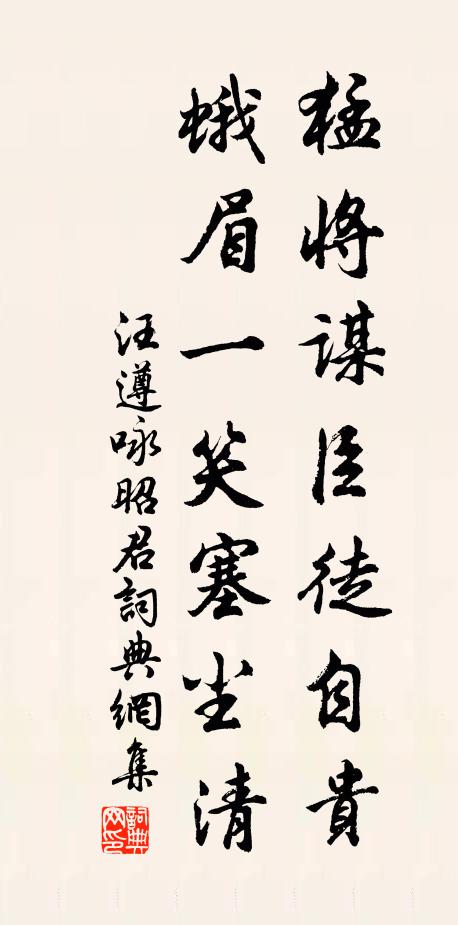 猛將謀臣徒自貴
蛾眉一笑塞尘清
汪遵咏昭君詞典網集
詞典网印